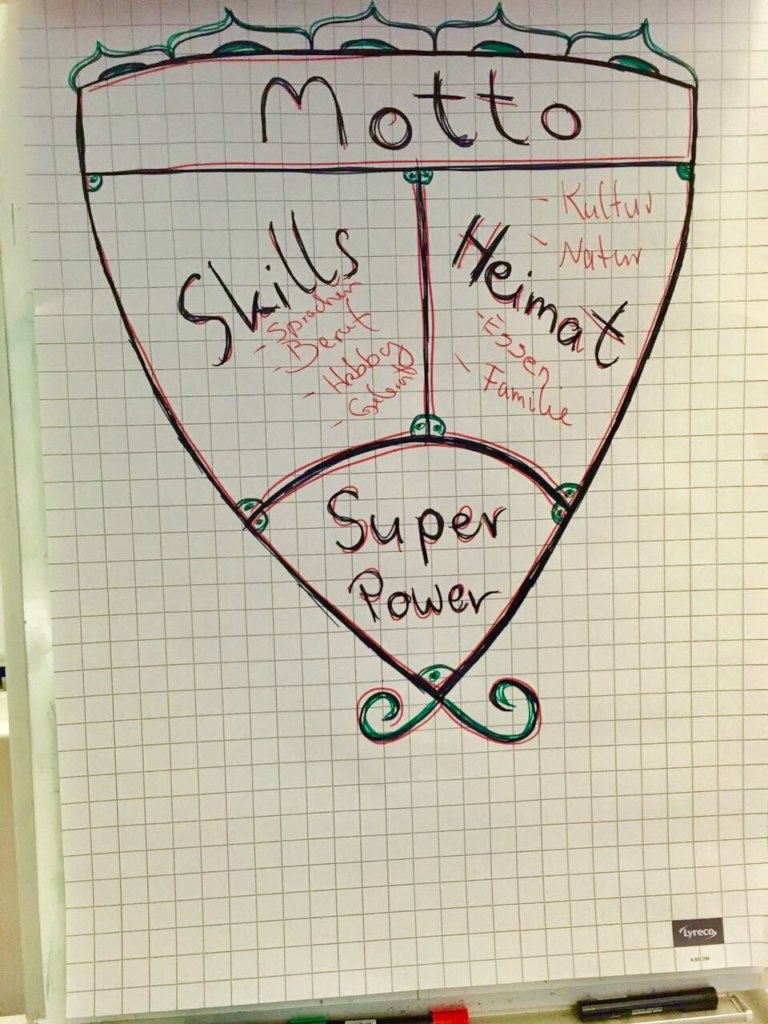 Motto
Skills
- Sprachen
- Beruf
- Hobby
-
Heimat
- Kultur
- Natur
- Essen
- Familie
Super
Power
Lyreco